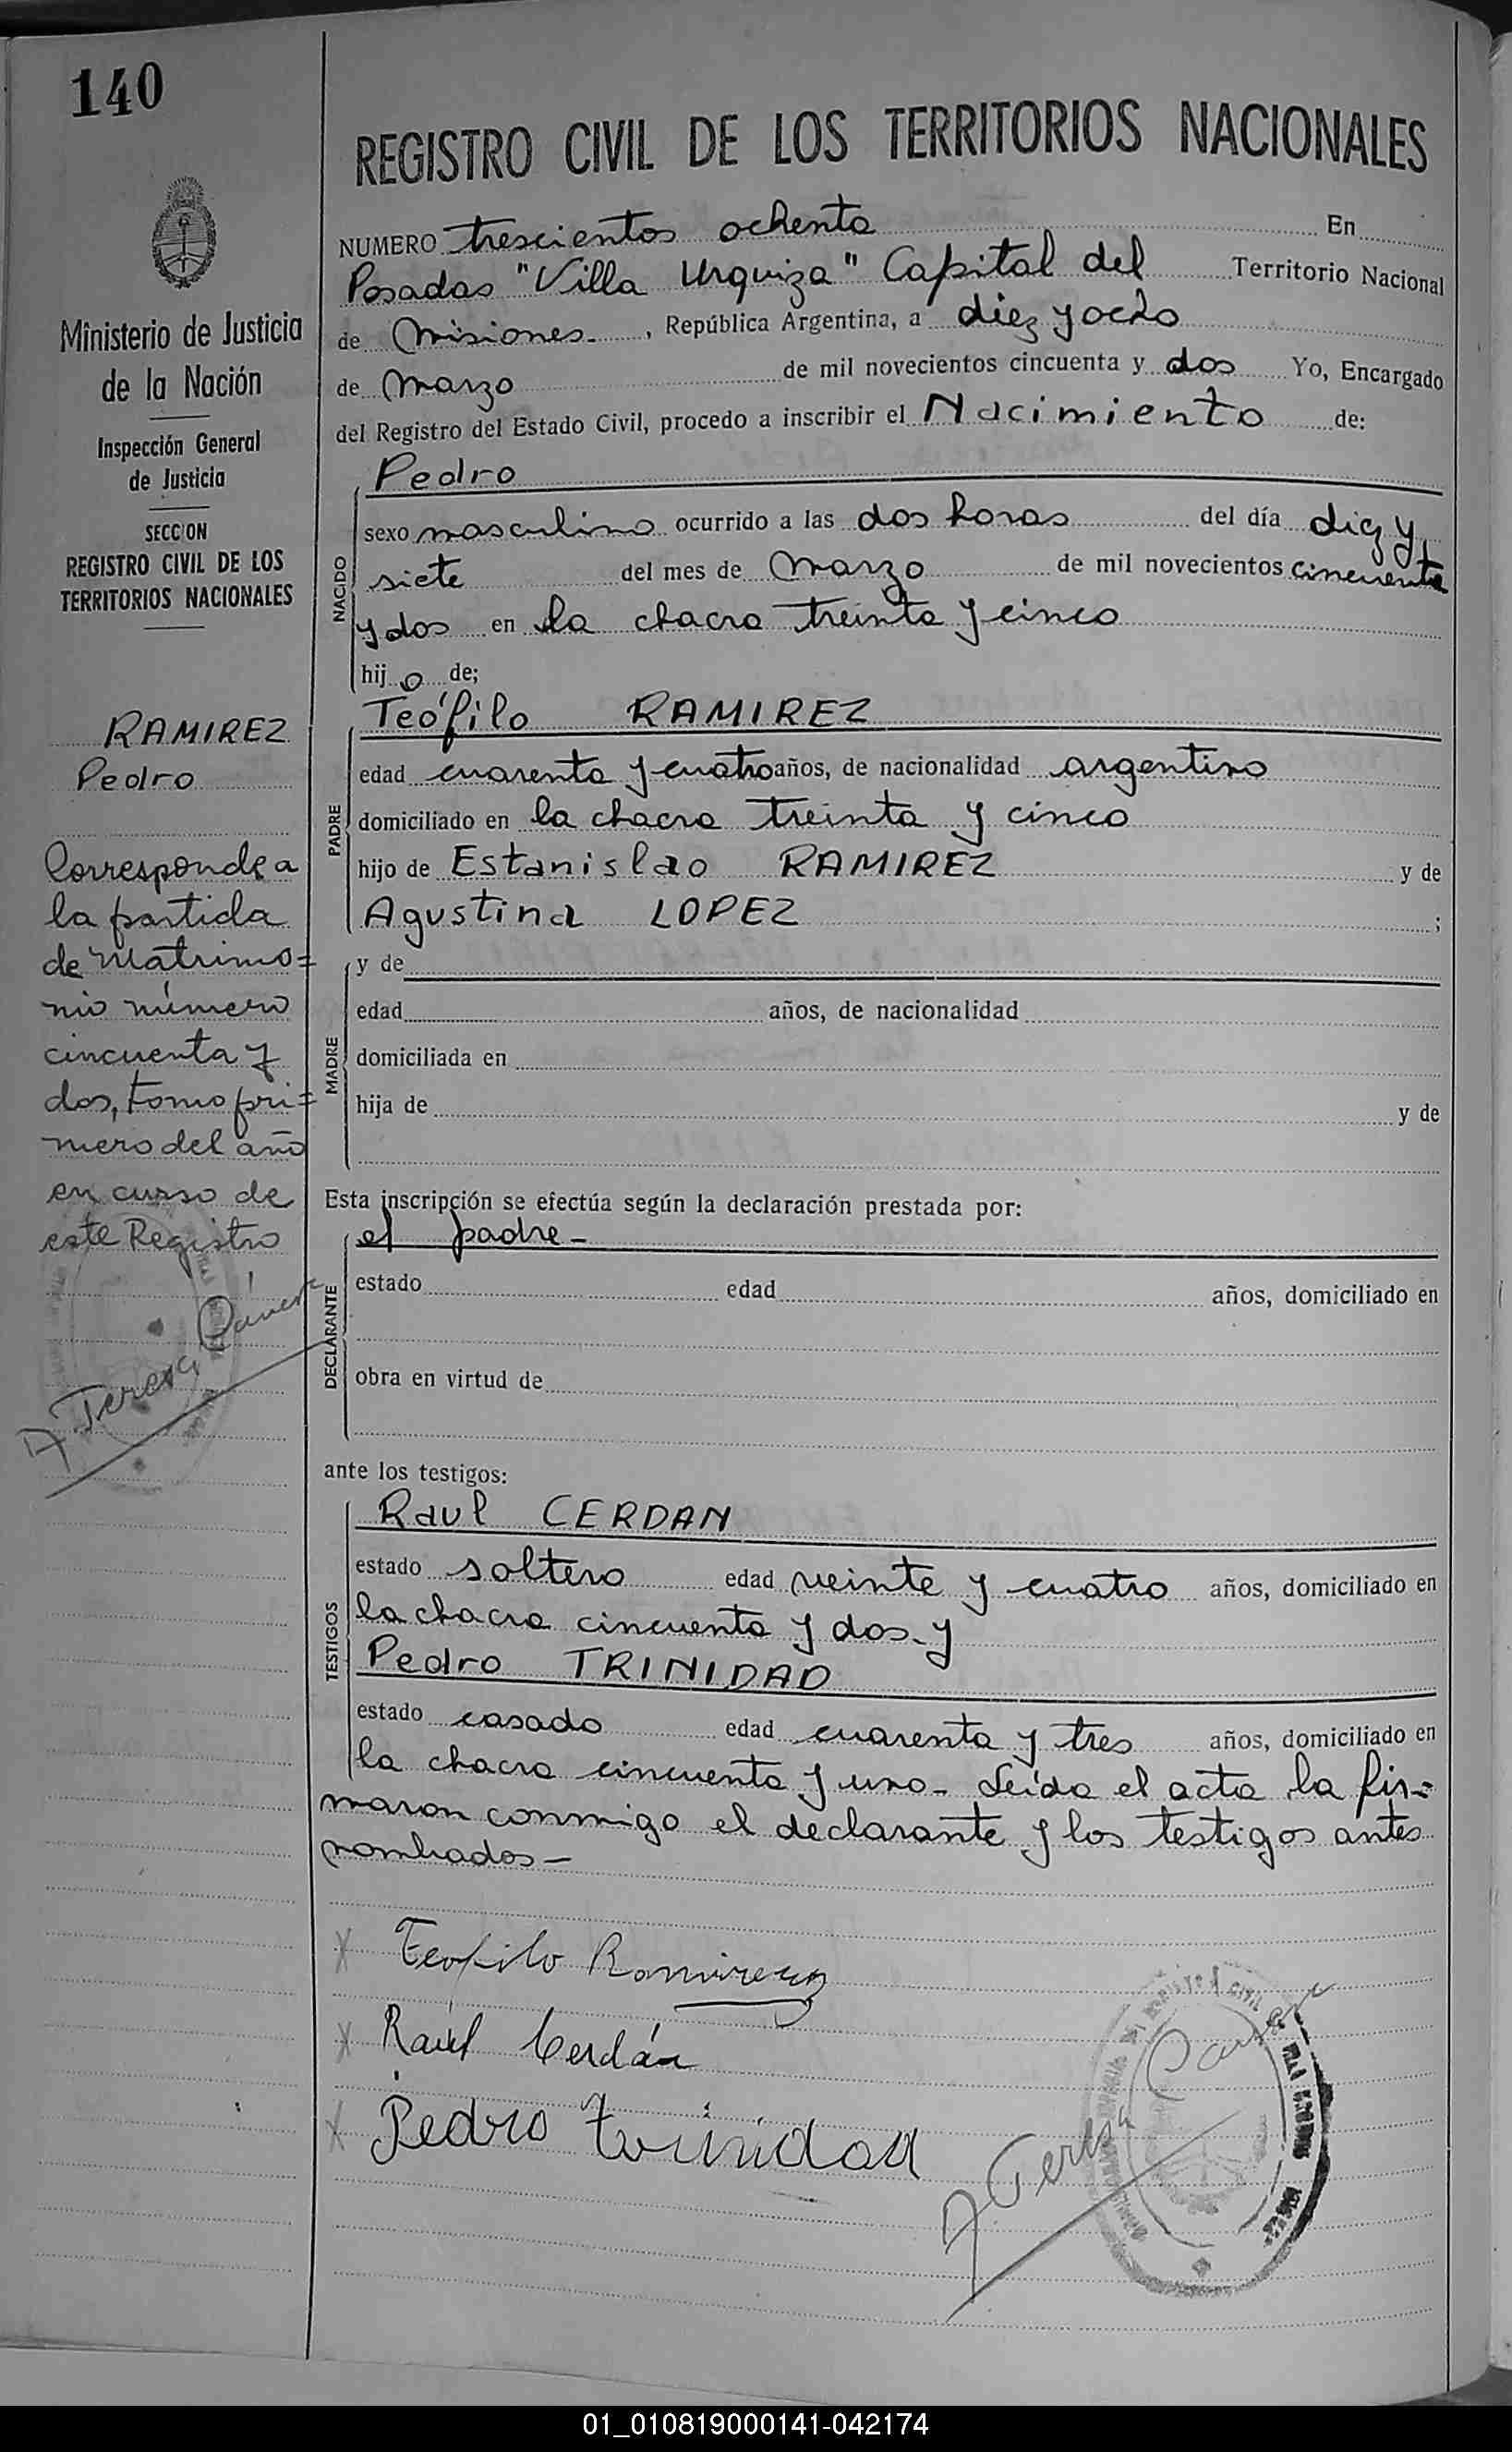 140
REGISTRO CIVIL DE LOS TERRITORIOS NACIONALES
NUMERO trescientos ochenta En
Posadas "Villa Urquiza" Capital del Territorio Nacional
de Misiones-, República Argentina, a diez y ocho
de Marzo de mil novecientos cincuenta y dos Yo, Encargado
del Registro del Estado Civil, procedo a inscribir el Nacimiento de:
Ministerio de Justicia
de la Nación
Inspección General
de Justicia
SECCION
REGISTRO CIVIL DE LOS
TERRITORIOS NACIONALES
NACIDO
Pedro
sexo masculino ocurrido a las dos horas del día diez y
siete del mes de Marzo de mil novecientos cincuenta
y dos en la chacra treinta y cinco
hijo de;
RAMIREZ
Pedro
Corresponde a
la partida
de Matrimo=
nio número
cincuenta y
dos, tomo pri=
mero del año
en curso de
este Registro
A Teresa
PADRE
Teófilo RAMIREZ
edad cuarenta y cuatro años, de nacionalidad argentino
domiciliado en la chacra treinta y cinco
hijo de Estanislao RAMIREZ y de
Agustina LOPEZ ;
MADRE
y de
edad años, de nacionalidad
domiciliada en
hija de y de
Esta inscripción se efectúa según la declaración prestada por:
el padre-
DECLARANTE
estado edad años, domiciliado en
obra en virtud de
ante los testigos:
TESTIGOS
Raul CERDAN
estado soltero edad veinte y cuatro años, domiciliado en
la chacra cincuenta y dos- y
Pedro TRINIDAD
estado casado edad cuarenta y tres años, domiciliado en
la chacra cincuenta y uno- Leída el acta la fir=
maron conmigo el declarante y los testigos antes
nombrados-
X Teofilo Ramirez
X Raúl Cerdán
X Pedro trinidad
A Teresa
01_010819000141-042174